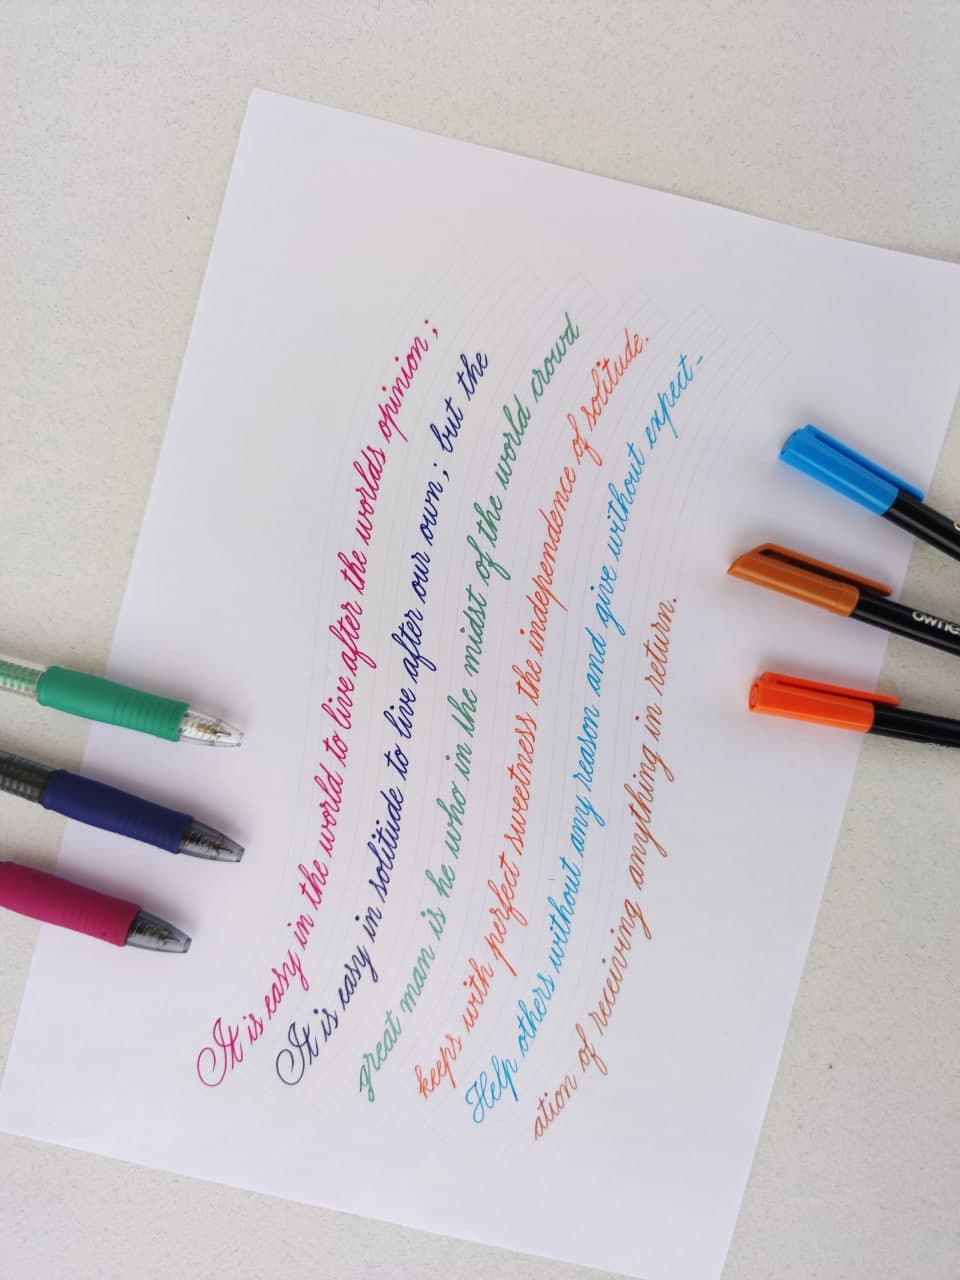 It is easy in the world to live after the worlds opinion;
It is easy in solitude to live after our own; but the
great man is he who in the midst of the world crowd
keeps with perfect sweetness the independence of solitude.
Help others without any reason and give without expect-
ation of receiving anything in return.